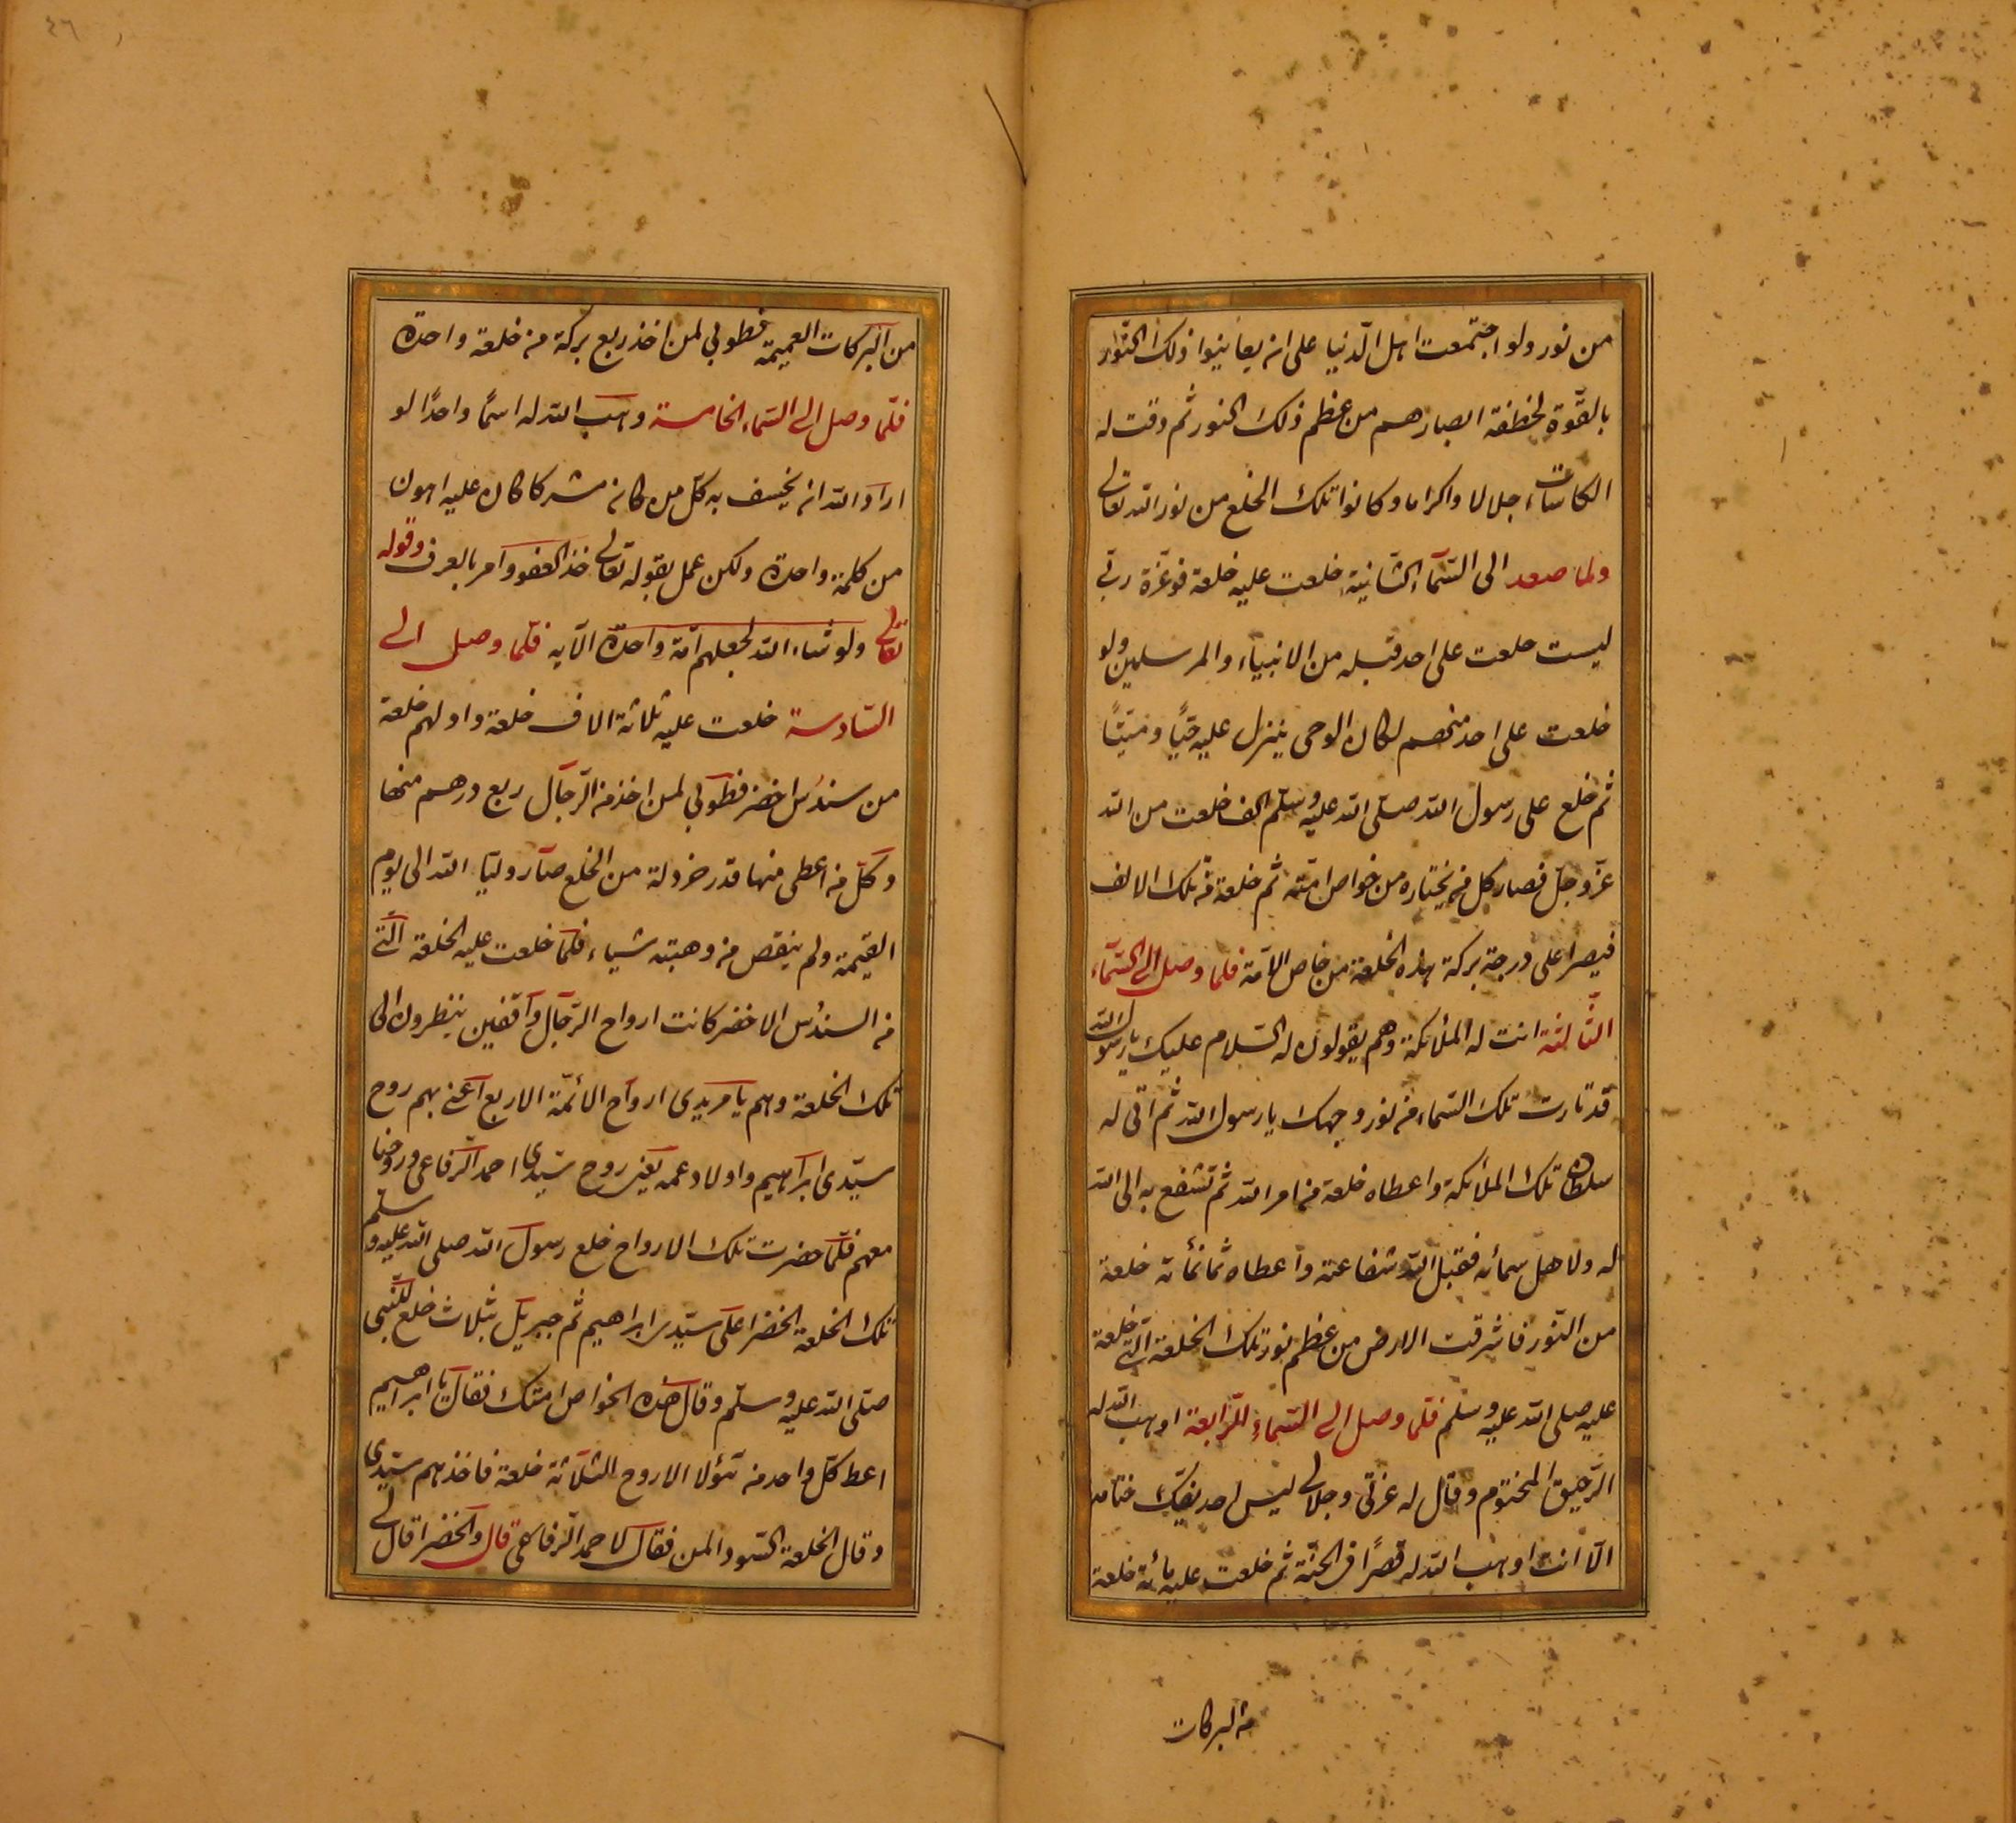 من نور ولو اجتمعت اهل الدّنيا على ان يعاينوا ذلك النّور
بالقوّة لخطفة ابصارهم من عظم ذلك النور ثم دقت له
الكاسات اجلالا واكراما وكانوا تلك الخلع من نور الله تعالى
ولما صعد الى السّماء الثانية خلعت عليه خلعة فوعزة ربّي
ليست خلعت على احد قبله من الانبياء والمرسلين ولو
خلعت على احد منهم لكان الوحى ينزل عليه حيًّا وميّتًا
ثم خلع على رسول الله صلّى الله عليه وسلّم الف خلعت من الله
عزّ وجلّ فصار كل من يختاره من خواص امته ثم خلعة من تلك الالف
فيصر اعلى درجة بركة هذه الخلعة من خاص الامّة فلما وصل الى السّماء
الثّالثة اتت له الملائكة وهم يقولون له السّلام عليك يا رسول الله
قد نارت تلك السّماء من نور وجهك يا رسول الله ثم اتى له
سلطان تلك الملائكة واعطاه خلعة من امر الله ثم تشفع به الى الله
له ولاهل سمائه فقبل الله شفاعته واعطاه ثمانمائة خلعة
من النّور فاشرقت الارض من عظم نور تلك الخلعة الّتى خلعة
عليه صلى الله عليه وسلم فلما وصل الى السّماء الرّابعة اوهب الله له
الرّحيق المختوم وقال له عزتى وجلالى ليس احد يفكّ ختامه
الّا انت اوهب الله له قصرًا فى الجنّة ثم خلعت عليه مائة خلعة
من البركات
٤٦
من البركات العميمة فطوبى لمن اخذ ربع بركة من خلعة واحدة
فلمّا وصل الى السّماء الخامسة وهب الله له اسمًا واحدًا لو
اراد الله ان يخسف به كلّ من كان مشركا كان عليه اهون
من كلمة واحدة ولكن عمل بقوله تعالى خذ العفو وامر بالعرف وقوله
تعالى ولو شاء الله لجعلهم امّة واحدة الآيه فلمّا وصل الى
السّادسة خلعت عليه ثلاثة الاف خلعة واولهم خلعة
من سندُس اخضر فطوبى لمن اخذ من الرّجال ربع درهم منها
وكلّ من اعطى منها قدر خردلة من الخلع صار وليّا الله الى يوم
القيمة ولم ينقص من وهبته شياء فلمّا خلعت عليه الخلعة الّتى
من السندُس الاخضر كانت ارواح الرّجال واقفين ينظرون الى
تلك الخلعة وهم يا مريدى ارواح الائمّة الاربع اعنى بهم روح
سيّدى ابراهيم واولاد عمه يعنى روح سيّدى احمد الرّفاعى وروحنا
معهم فلمّا حضرت تلك الارواح خلع رسول الله صلى الله عليه وسلم
تلك الخلعة الخضرا على سيّدى ابراهيم ثم جبريل بثلاث خلع للنّبى
صلّى الله عليه وسلّم وقال هذه الخواص امتك فقال يا ابراهيم
اعط كلّ واحد من هؤلا الاروح الثلاثة خلعة فاخذهم سيّدى
وقال الخلعة السّودا لمن فقال لاحمد الرّفاعى قال والخضرا قال لى